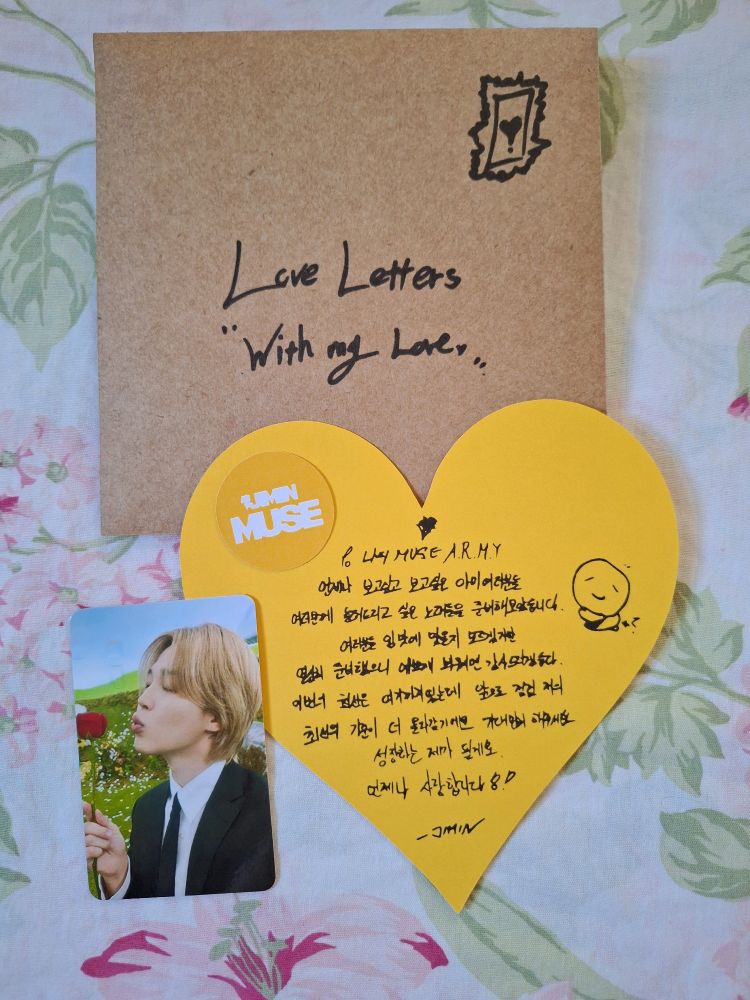 Love Letters
"With my Love."
JIMIN
MUSE
나의 MUSE A.R.M.Y
언제나 보고싶고 보고싶은 아미여러분들
여러분께 들려드리고 싶은 노래들을 준비해보았습니다.
여러분들 입맛에 맞을지 모르겠지만
열심히 준비했으니 예쁘게 봐주시면 감사하겠습니다.
이번 최선은 여기까지였는데 앞으로 점점 저의
최선의 기준이 더
성장하는 제가 될게요.
언제나 사랑합니다
-JIMIN